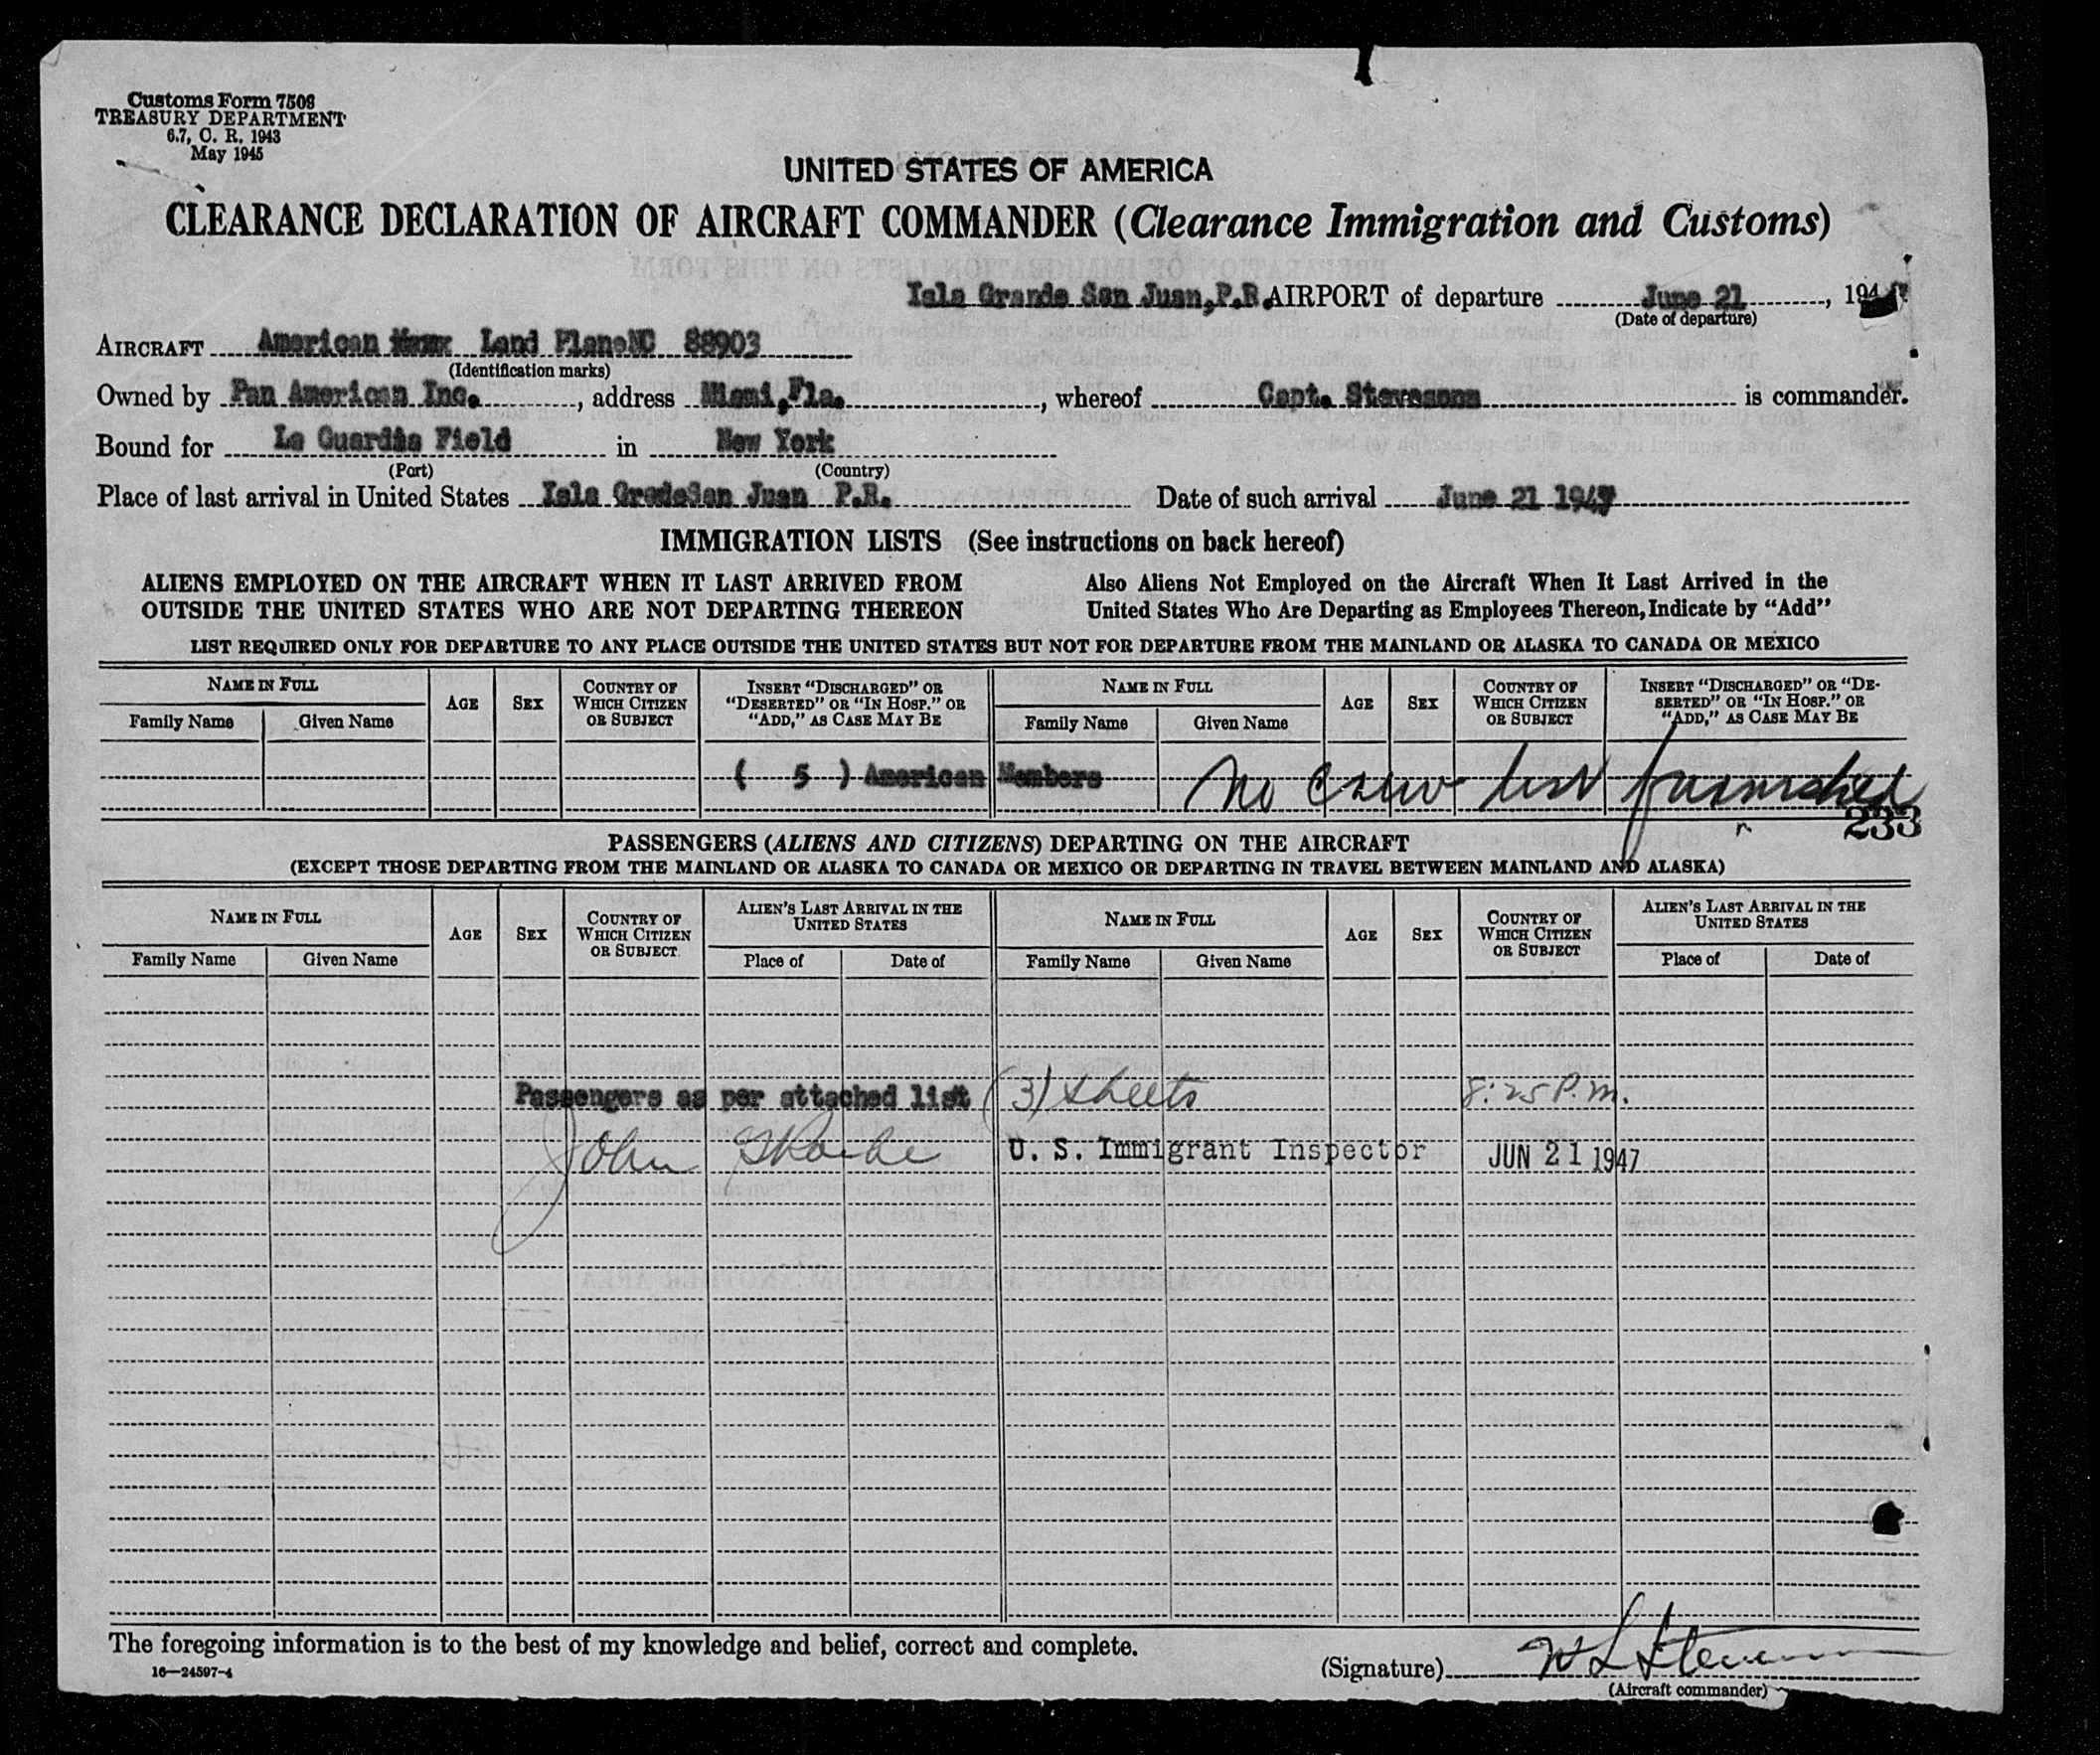 Customs Form 7509
TREASURY DEPARTMENT
6.7, C. R. 1943
May 1945
UNITED STATES OF AMERICA
CLEARANCE DECLARATION OF AIRCRAFT COMMANDER (Clearance Immigration and Customs)
Isla Grande San Juan,P.R. AIRPORT of departure June 21, 1947
(Date of departure)
AIRCRAFT American Land PlaneNC 88903
(Identification marks)
Owned by Pan American Inc. , address Miami,Fla. , whereof Capt. Stevesons is commander.
Bound for La Guardia Field in New York
(Port) (Country)
Place of last arrival in United States Isla GradeSan Juan P.R. Date of such arrival June 21 1947
IMMIGRATION LISTS (See instructions on back hereof)
ALIENS EMPLOYED ON THE AIRCRAFT WHEN IT LAST ARRIVED FROM Also Aliens Not Employed on the Aircraft When It Last Arrived in the
OUTSIDE THE UNITED STATES WHO ARE NOT DEPARTING THEREON United States Who Are Departing as Employees Thereon, Indicate by "Add"
LIST REQUIRED ONLY FOR DEPARTURE TO ANY PLACE OUTSIDE THE UNITED STATES BUT NOT FOR DEPARTURE FROM THE MAINLAND OR ALASKA TO CANADA OR MEXICO
NAME IN FULL AGE SEX COUNTRY OF WHICH CITIZEN OR SUBJECT INSERT "DISCHARGED" OR "DESERTED" OR "IN HOSP." OR "ADD," AS CASE MAY BE NAME IN FULL AGE SEX COUNTRY OF WHICH CITIZEN OR SUBJECT INSERT "DISCHARGED" OR "DE-SERTED" OR "IN HOSP." OR "ADD," AS CASE MAY BE
Family Name Given Name Family Name Given Name
( 5 ) American Members No Crew list furnished
233
PASSENGERS (ALIENS AND CITIZENS) DEPARTING ON THE AIRCRAFT
(EXCEPT THOSE DEPARTING FROM THE MAINLAND OR ALASKA TO CANADA OR MEXICO OR DEPARTING IN TRAVEL BETWEEN MAINLAND AND ALASKA)
NAME IN FULL AGE SEX COUNTRY OF WHICH CITIZEN OR SUBJECT ALIEN'S LAST ARRIVAL IN THE UNITED STATES NAME IN FULL AGE SEX COUNTRY OF WHICH CITIZEN OR SUBJECT ALIEN'S LAST ARRIVAL IN THE UNITED STATES
Family Name Given Name Place of Date of Family Name Given Name Place of Date of
Passengers as per attached list (3) sheets 8:25 P.M.
John U. S. Immigrant Inspector JUN 21 1947
The foregoing information is to the best of my knowledge and belief, correct and complete.
16—24597-4
(Signature) W L Steven
(Aircraft commander)